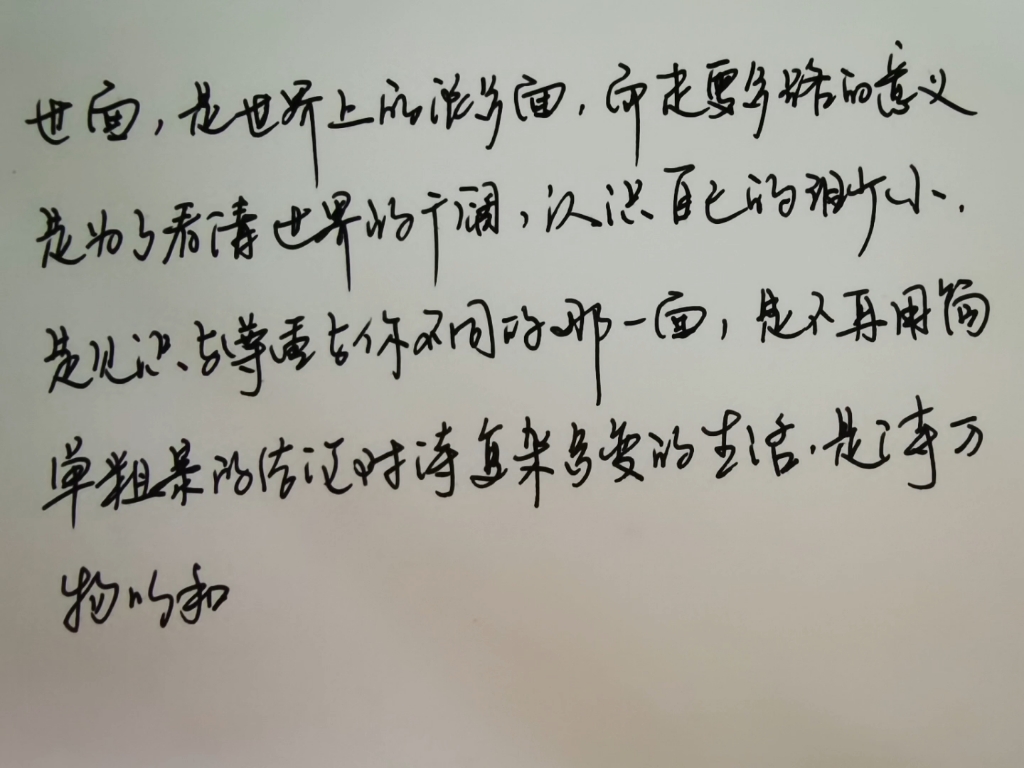 世面，是世界上的很多面，而走更多路的意义
是为了看清世界的广阔，认识自己的渺小.
是见识与尊重与你不同的那一面，是不再用简
单粗暴的法还对待复杂多变的生活.是待万
物的和